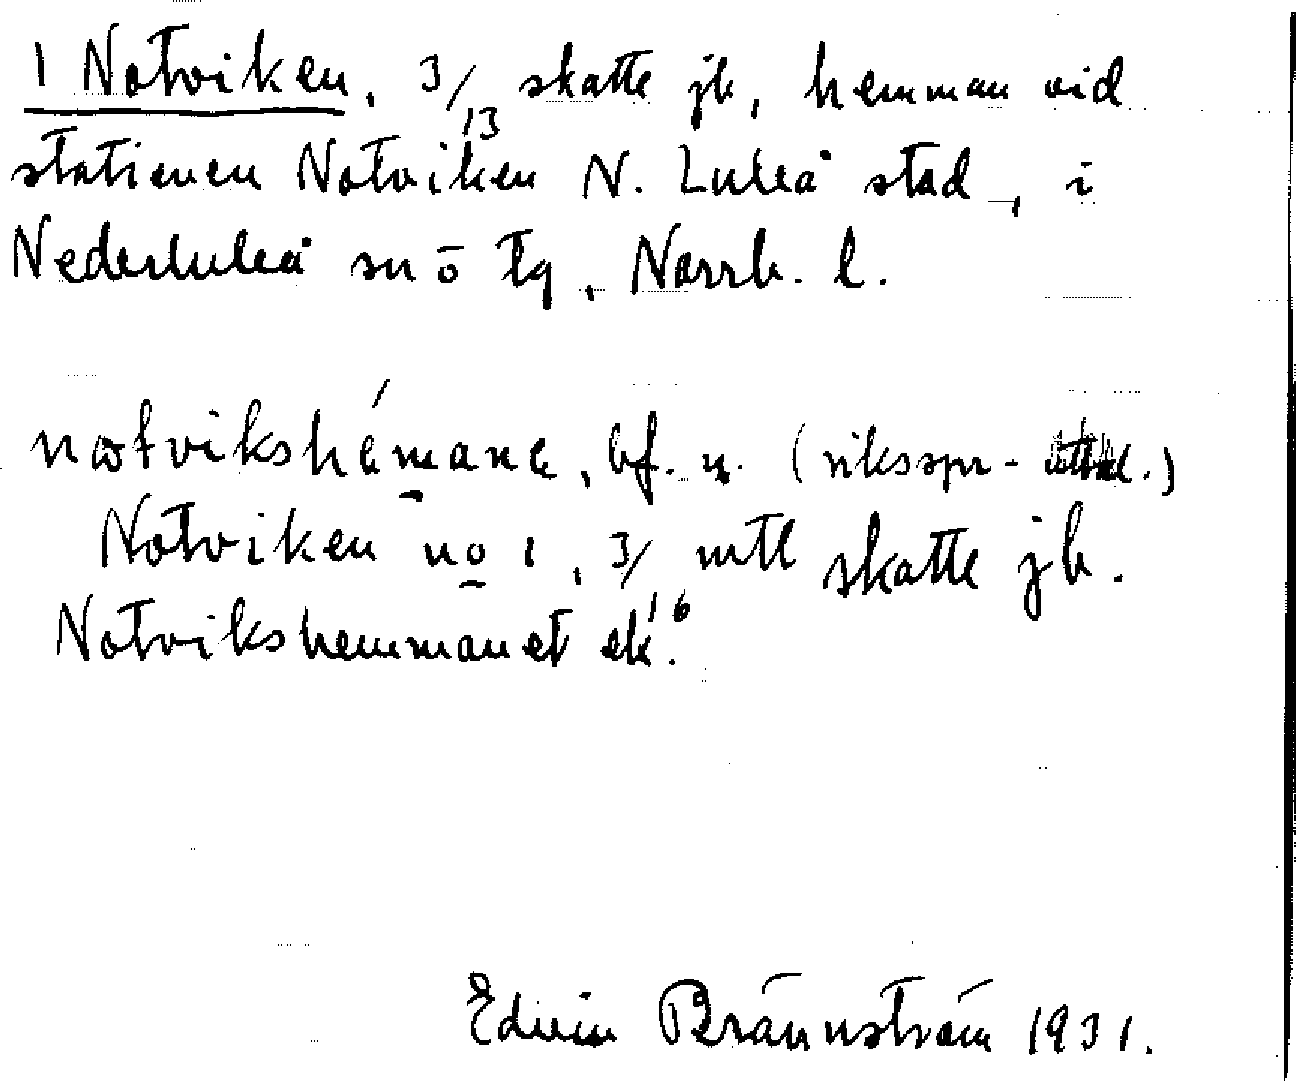 1 Notviken, 3/13 skatte jb, hemman vid
stationen Notviken N. Luleå stad, i
Nederluleå sn o tg, Norrb. l.
notvikshémane, bf. n. (riksspr-
Notviken no 1, 3/16 mtl skatte jb.
Notvikshemmanet ek.
Edvin Brännström 1931.